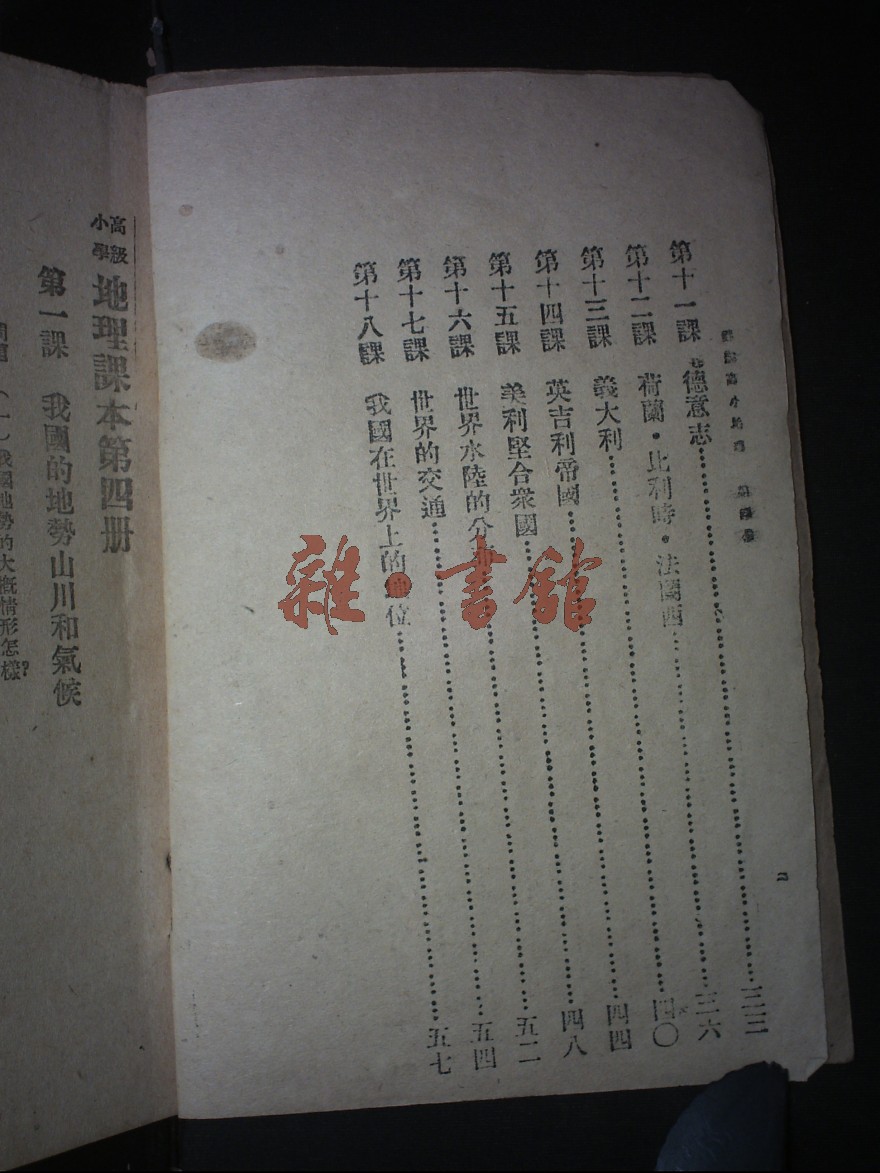 高小地理
二
第十一課 德意志……三三
第十二課 荷蘭・比利時・法蘭西……三六
第十三課 義大利……四〇
第十四課 英吉利帝國……四四
第十五課 美利堅合衆國……四八
第十六課 世界水陸的分布……五二
第十七課 世界的交通……五四
第十八課 我國在世界上的地位……五七
高級小學 地理課本第四册
第一課 我國的地勢山川和氣候
(一)我國地勢的大概情形怎樣?
雜・書館